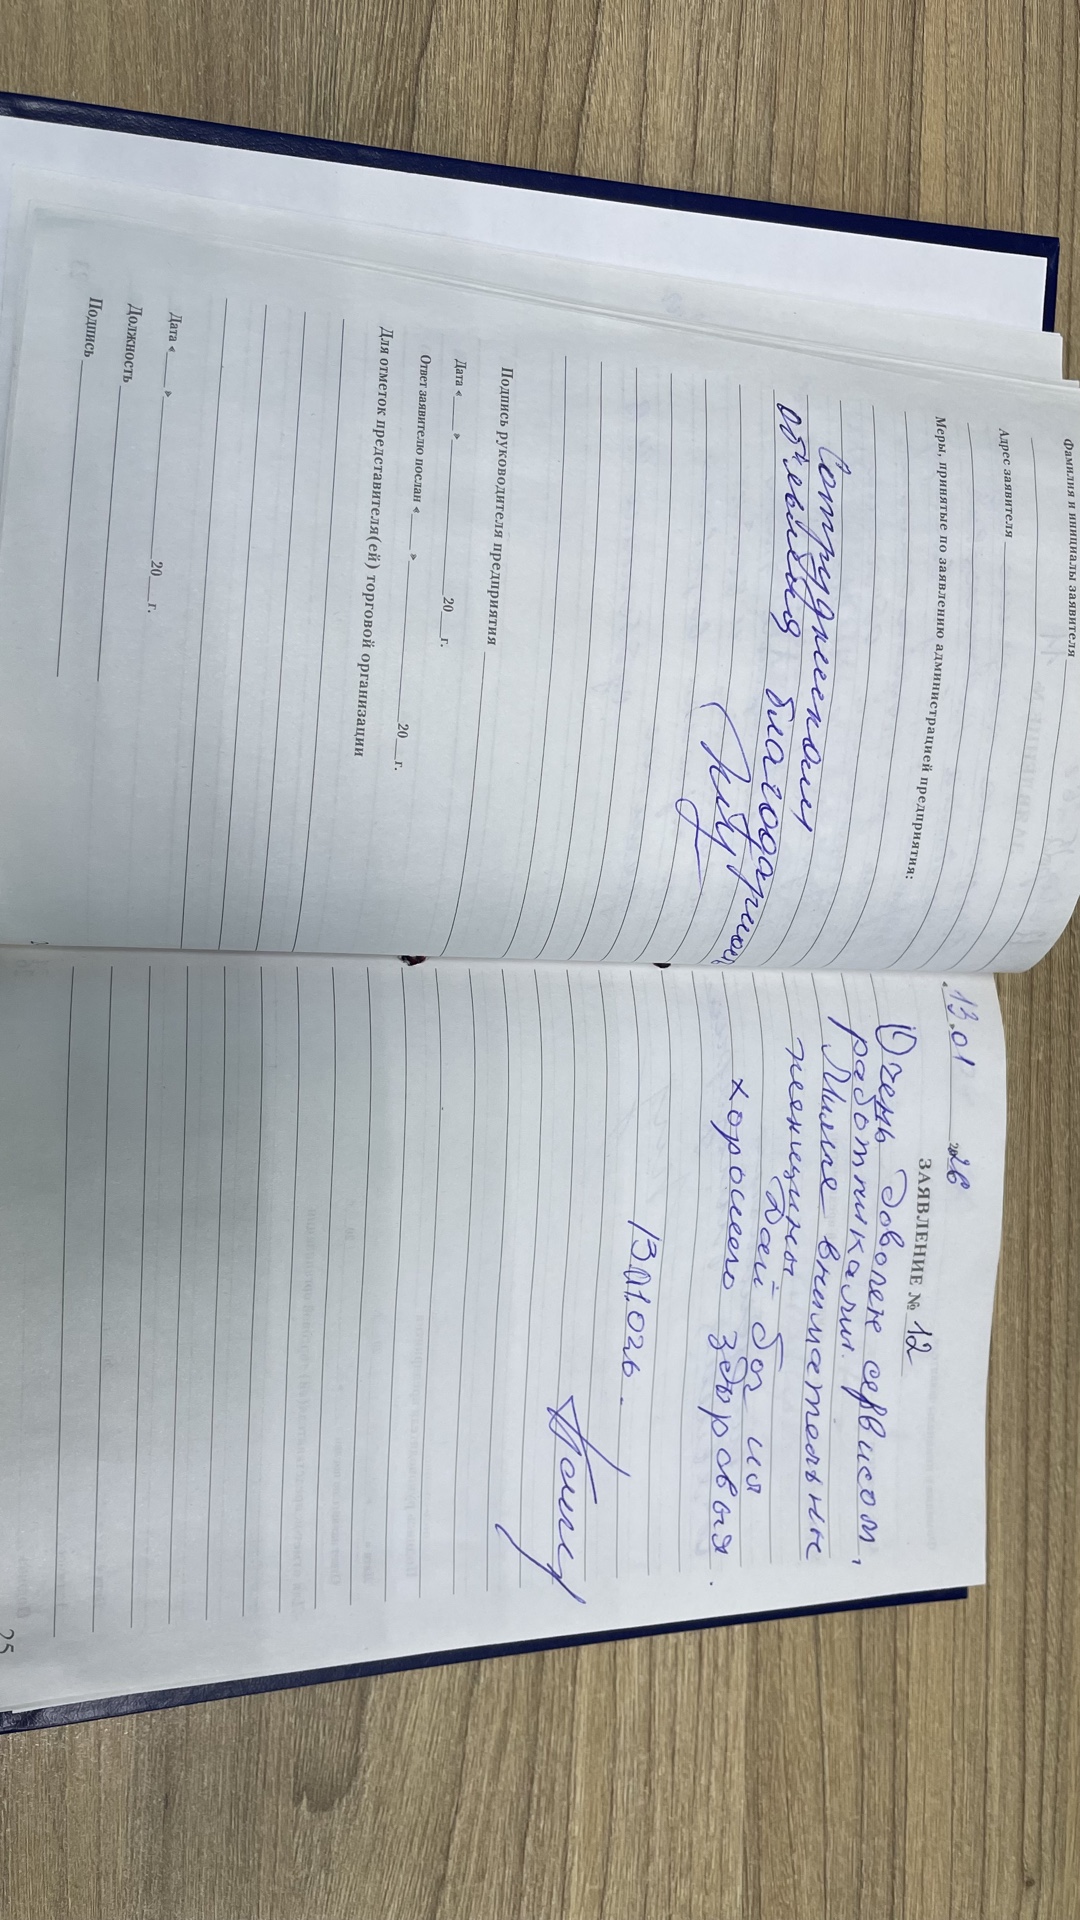 Фамилия и инициалы заявителя
Адрес заявителя
Меры, принятые по заявлению администрацией предприятия:
Сотрудниками
объявлена благодарность
Подпись руководителя предприятия
Дата «___»___20__г.
Ответ заявителю послан «___»___20__г.
Для отметок представителя(ей) торговой организации
Дата «___»___20__г.
Должность
Подпись
13.01 2026
ЗАЯВЛЕНИЕ № 12
Очень доволен сервисом,
работниками.
Милые внимательные
женщины
Дай бог им
хорошего здоровья.
13.01.026.
25